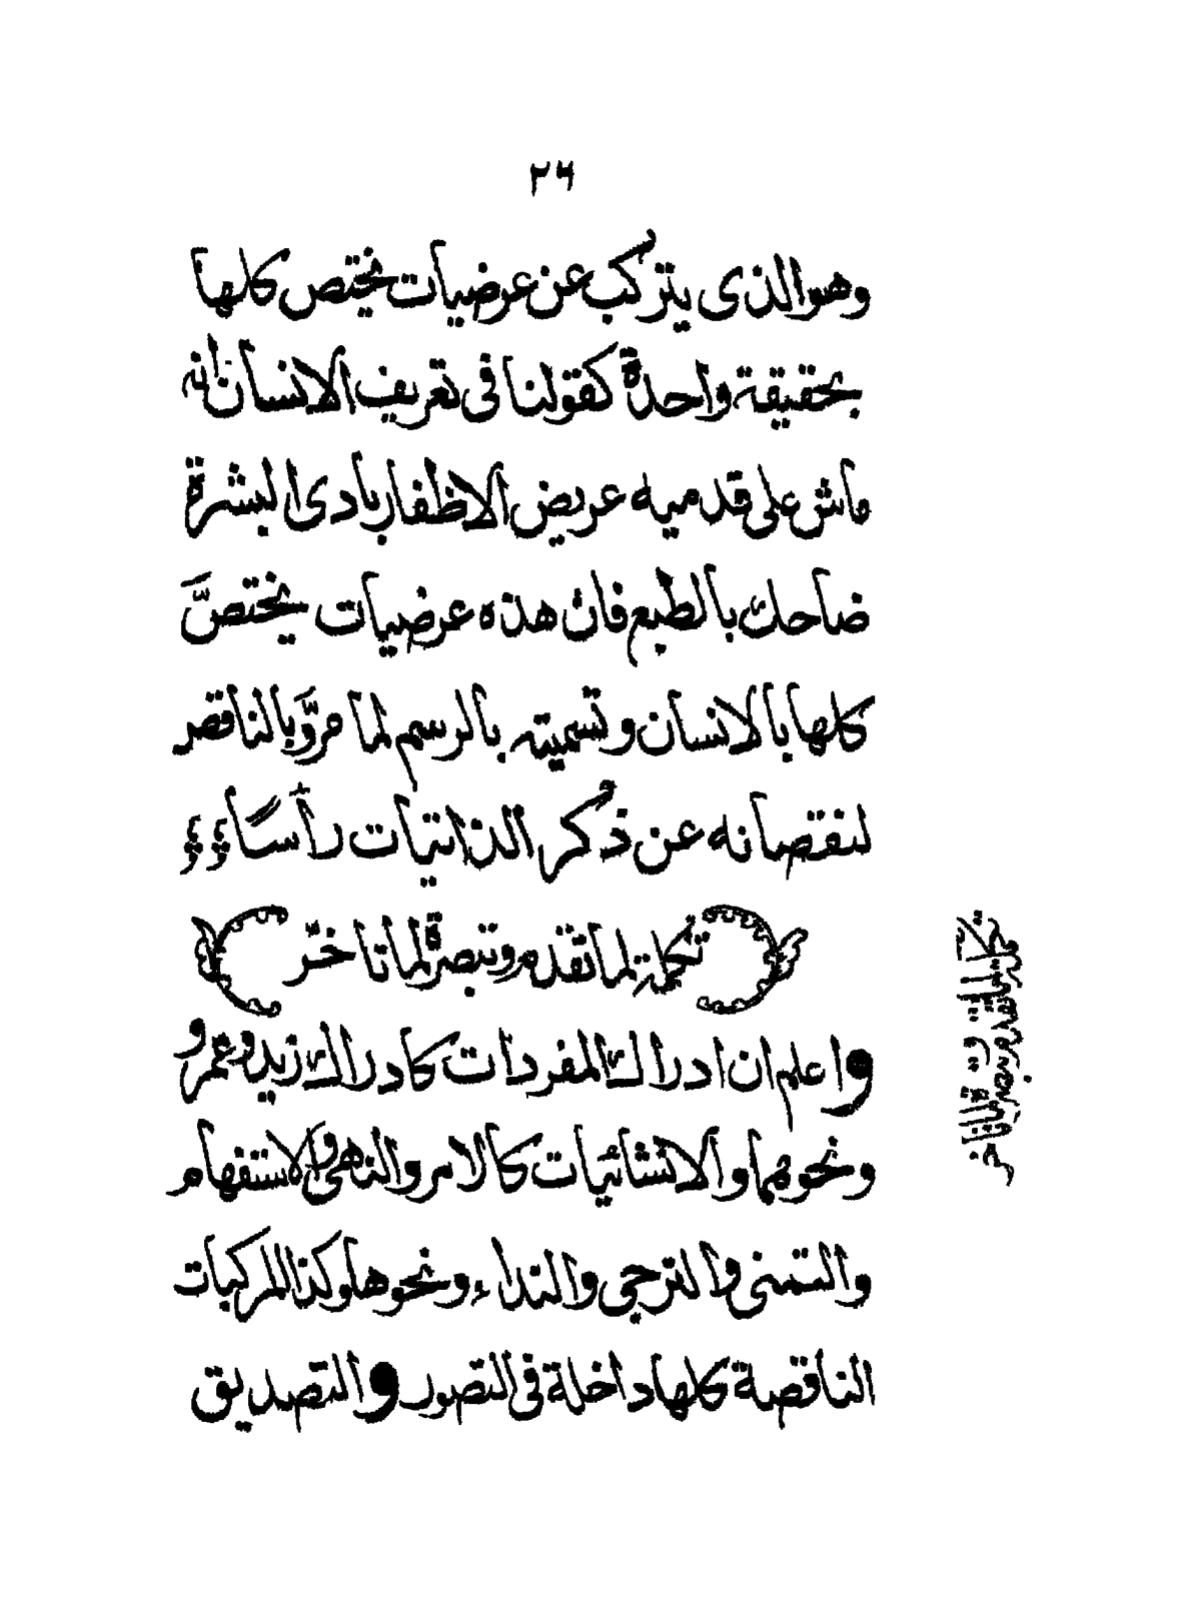 ٢٦
وهو الذى يتركب عن عرضيات تختص كلها
بحقيقة واحدة كقولنا فى تعريف الانسان انه
ماش على قدميه عريض الاظفار بادى البشرة
ضاحك بالطبع فان هذه عرضيات يختصّ
كلها بالانسان وتسميته بالرسم لما مرّ وبالناقص
لنقصانه عن ذكر الذاتيات رأساً
تكملة لما تقدم وتبصرة لما تاخّر
واعلم ان ادراك المفردات كادراك زيد وعمرو
ونحوهما والانشائيات كالامر والنهى والاستفهام
والتمنى والترجى والنداء ونحوها وكذا المركبات
الناقصة كلها داخلة فى التصور والتصديق
تكملة لما تقدم وتبصرة لما تاخر